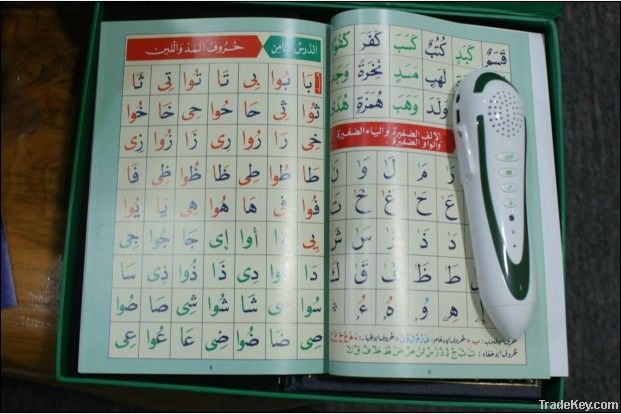 كَبَدٍ كُتُبٌ كَسَبَ كَفَرَ
لَهَبٍ مَسَدٍ نَخِرَةً
وَلَدَ وَهَبَ هُمَزَةٍ هُدًى
الألف الصغيرة والياء الصغيرة
والواو الصغيرة
رٰ مٰ لٰ وٰ نٰ
عٰ غٰ حٰ خٰ
دٰ ذٰ زٰ سٰ شٰ
طٰ ظٰ فٰ قٰ كٰ
هٖ وٗ هٗ ءٗ
الدرس الثامن حروف المد واللين
بَا بُوا بِى تَا تُوا تِى ثَا
ثُوا ثِى حَا حُوا حِى خَا خُوا
خِى رَا رُوا رِى زَا زُوا زِى
طَا طُوا طِى ظَا ظُوا ظِى فَا
فُوا فِى هَا هُوا هِى يَا يُوا
يِى ءَا أُوا إِى جَا جُوا جِى
دَا دُوا دِى ذَا ذُوا ذِى سَا
سُوا سِى شَا شُوا شِى صَا صُوا
صِى ضَا ضُوا ضِى عَا عُوا عِى
TradeKey.com